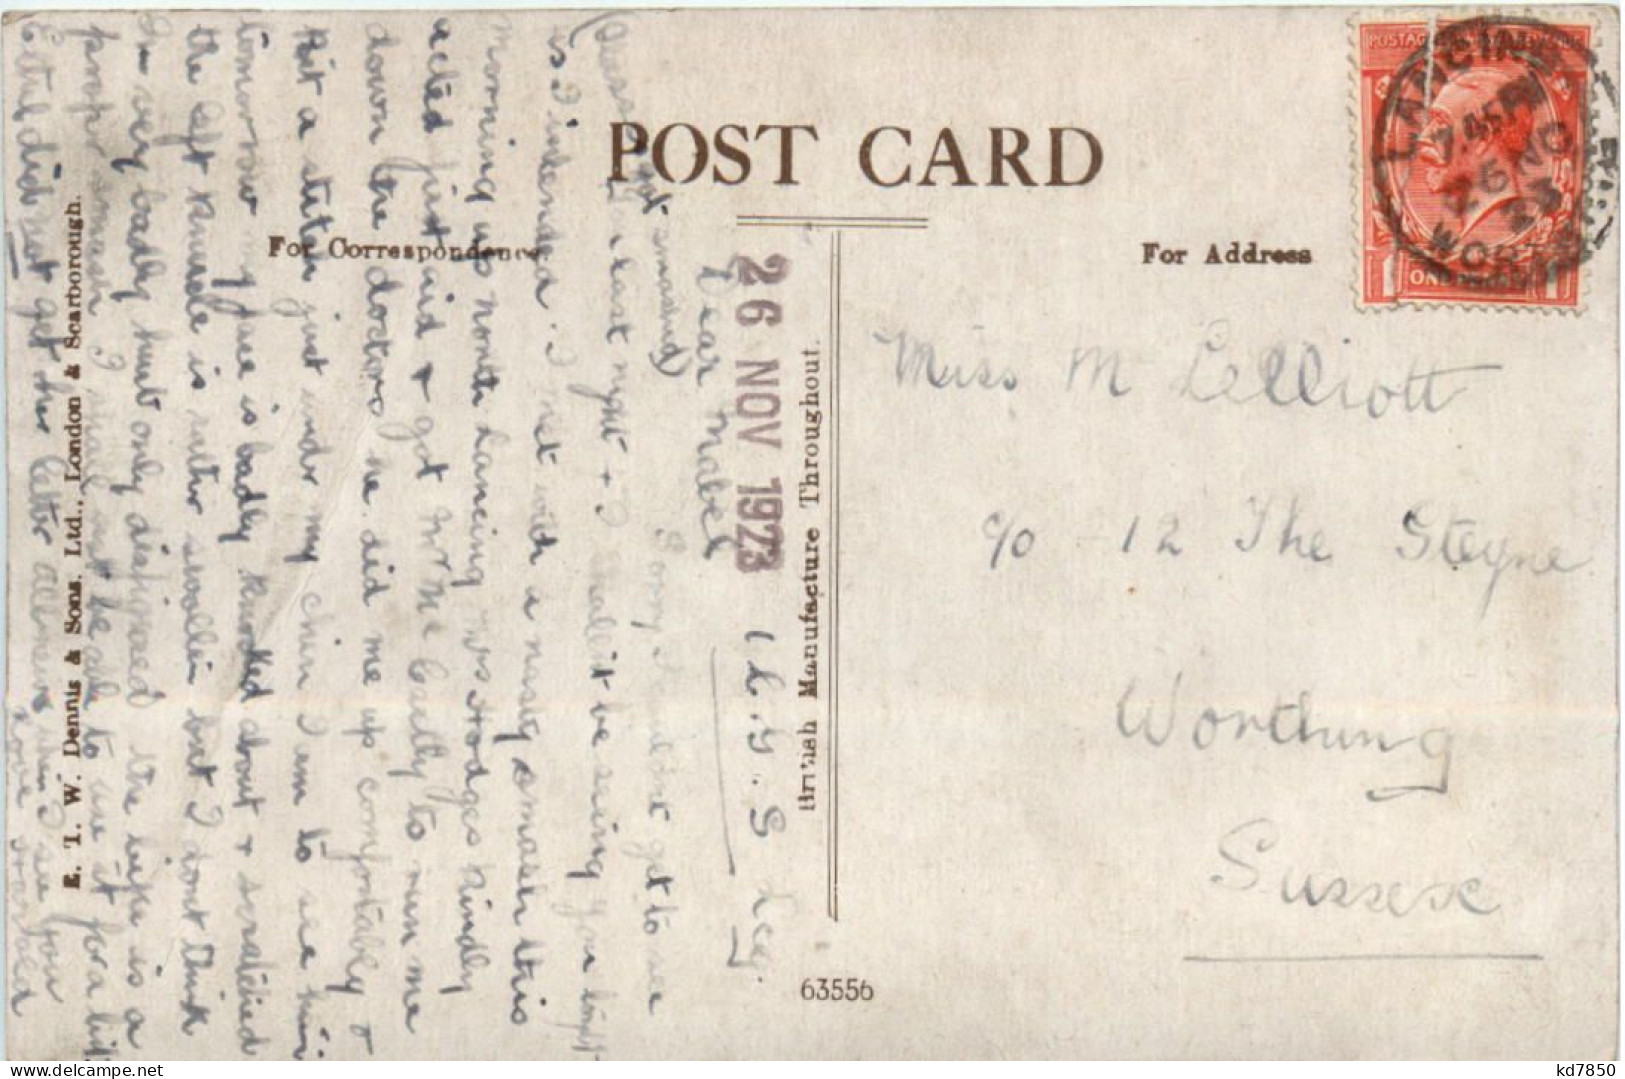 POST CARD
For Correspondence
For Address
British Manufacture Throughout.
E. T. W. Dennis & Sons. Ltd., London & Scarborough.
63556
POSTAGE
ONE
LANCING
7.45 PM
26 NO
23
WORTHING
26 NOV 1923
Miss M Lelliott
c/o 12 The Steyne
Worthing
Sussex
1 L. Y. S Lcg.
Dear Mabel
Sorry I couldnt get to see
you last night + I shall it be seing you tonight
as I intended. I met with a nasty smash this
morning up North Lancing Mrs Hodges kindly
acted first aid + got Mr Mc Caully to run me
down the doctors he did me up comfortably +
Put a stitch just under my chin I am to see him
tomorrow my face is badly knocked about + scratched
the left knuckle is rather swollen but I dont think
Im very badly hurt only disfigured the bike is a
proper smash I shall not be able to use it for a bit
Ethel did not get her letter all news when I see you
Love
got smashed)